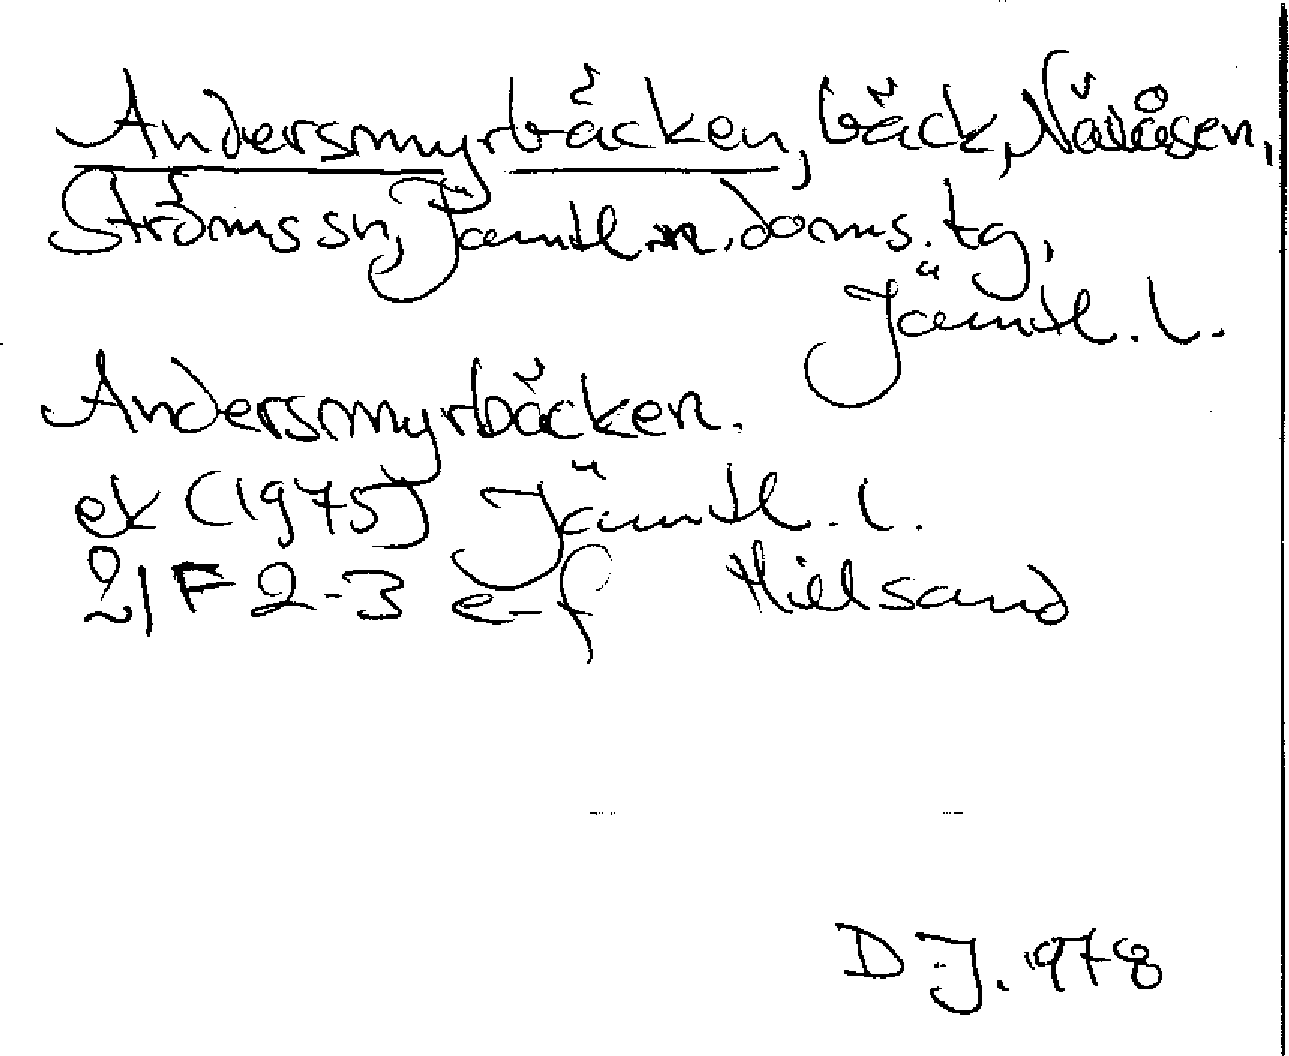 Andersmyrbäcken, bäck, Näveåsen,
Ströms sn, Jämtl. n. doms. tg,
Jämtl. l.
Andersmyrbäcken.
ek (1975) Jämtl. l.
21 F 2-3 e-f Hillsand
D J. 1978